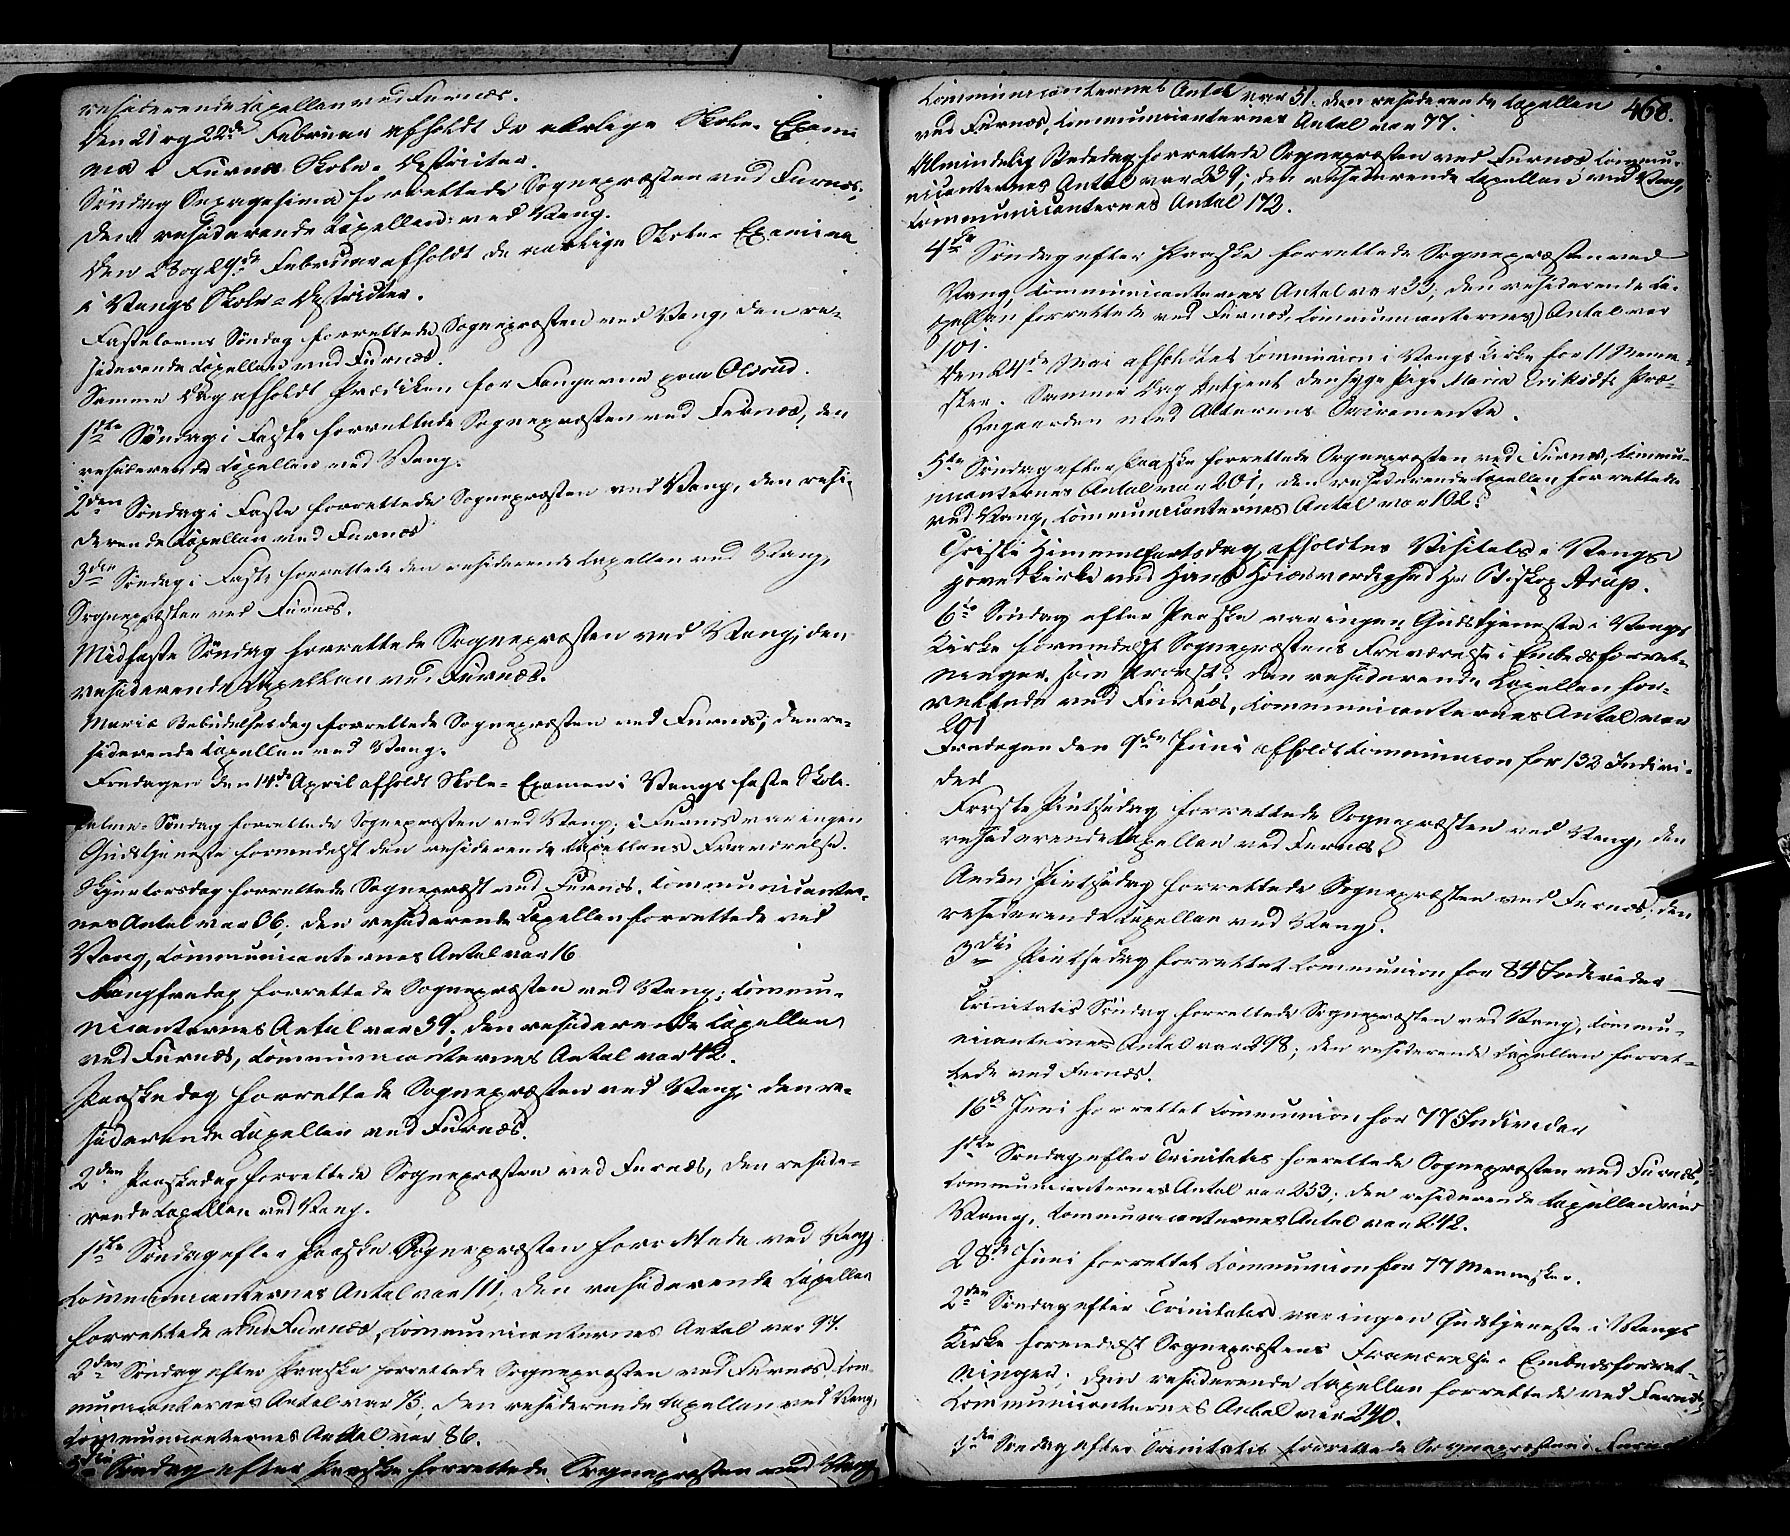 residerende Capellan ved Furnæs.
Den 21 og 22de Februar afholdt de aarlige Skole-Exami
na i Furnæs Skole-Districter.
Søndag Sexagesima forrettede Sognepræsten ved Furnæs.
Den residerende Capellan ved Vang.
Den 28 og 29de Februar afholdt de aarlige Skole-Examina
i Vangs Skole-Districter.
Fastelavns Søndag forrettede Sognepræsten ved Vang, den re-
siderende Capellan ved Furnæs.
Samme Dag afholdt Prædiken for Fangerne paa Olsrud.
1ste Søndag i Faste forrettede Sognepræsten ved Furnæs, den
residerende Capellan ved Vang.
2den Søndag i Faste forrettede Sognepræsten ved Vang, den resi-
derende Capellan ved Furnæs
3die Søndag i Faste forrettede den residerende Capellan ved Vang,
Sognepræsten ved Furnæs.
Midfaste Søndag forrettede Sognepræsten ved Vang; den
residerende Capellan ved Furnæs.
Mariæ Bebudelsesdag forrettede Sognepræsten ved Furnæs; den re-
siderende Capellan ved Vang.
Fredagen den 14de April afholdt Skole-Examen i Vangs faste Skole.
Palme-Søndag forrettede Sognepræsten ved Vang; i Furnæs var ingen
Gudstjeneste formedelst den residerende Capellans Fraværelse.
Skjertorsdag forrettede Sognepræst ved Furnæs. Communicanter-
nes Antal var 86; den residerende Capellan forrettede ved
Vang, Communicanternes Antal var 16
Langfredag forrettede Sognepræsten ved Vang; Commu-
nicanternes Antal var 39; den residerende Capellan
ved Furnæs, Communicanternes Antal var 42.
Paaskedag forrettede Sognepræsten ved Vang; den re-
siderende Capellan ved Furnæs.
2den Paaskedag forrettede Sognepræsten ved Furnæs, den reside-
rende Capellan ved Vang.
1ste Søndag efter Paaske Sognepræsten forrettede ved Vang
Communicanternes Antal var 111; den residerende Capellan
forrettede ved Furnæs, Communicanternes Antal var 97.
2den Søndag efter Paaske forrettede Sognepræsten ved Furnæs, Com-
municanternes Antal var 73; den residerende Capellan ved Vang,
Communicanternes Antal var 86.
3die Søndag efter Paaske forrettede Sognepræsten ved Vang
468.
Communicanternes Antal var 51. den residerende Capellan
ved Furnæs, Communicanternes Antal var 77.
Almindelig Bededag forrettede Sognepræsten ved Furnæs Commu-
nicanternes Antal var 239; den residerende Capellan ved Vang,
Communicanternes Antal 172.
4de Søndag efter Paaske forrettede Sognepræsten ved
Vang, Communicanternes Antal var 33; den residerende Ca-
pellan forrettede ved Furnæs, Communicanternes Antal var
101.
Den 24de Mai afholdtes Communion i Vangs Kirke for 11 Menne-
sker. Samme Dag betjent den syge Pige Maria Eriksdtr Præ-
stegaarden med Alterens Sacramente.
5te Søndag efter Paaske forrettede Sognepræsten ved Furnæs, Commu-
nicanternes Antal var 201; den residerende Capellan forrettede
ved Vang, Communicanternes Antal var 102.
Christi Himmelfartsdag afholdtes Visitats i Vangs
Hovedkirke ved Hans Høiærværdighed Hr Biskop Arup.
6te Søndag efter Paaske var ingen Gudstjeneste i Vangs
Kirke formedelst Sognepræstens Fraværelse i Embedsforret-
ninger som Provst. Den residerende Capellan for-
rettede ved Furnæs, Communicanternes Antal var
291
Fredagen den 9de Juni afholdt Communion for 132 Indivi-
der
Første Pintsedag forrettede Sognepræsten ved Vang, den
residerende Capellan ved Furnæs.
Anden Pintsedag forrettede Sognepræsten ved Furnæs; den
residerende Capellan ved Vang.
3die Pintsedag forrettet Communion for 84 Individer
Trinitatis Søndag forrettede Sognepræsten ved Vang, Commu-
nicanternes Antal var 298; den residerende Capellan forret-
tede ved Furnæs.
16de Juni forrettet Communion for 77 Individer
1ste Søndag efter Trinitatis forrettede Sognepræsten ved Furnæs,
Communicanternes Antal var 233; den residerende Capellan ved
Vang, Communicanternes Antal var 242.
28de Juni forrettet Communion for 77 Mennesker.
2den Søndag efter Trinitatis var ingen Gudstjeneste i Vangs
Kirke formedelst Sognepræstens Fraværelse i Embedsforret-
ninger; den residerende Capellan forrettede ved Furnæs
Communicanternes Antal var 240.
3die Søndag efter Trinitatis forrettede Sognepræsten i Furnæs